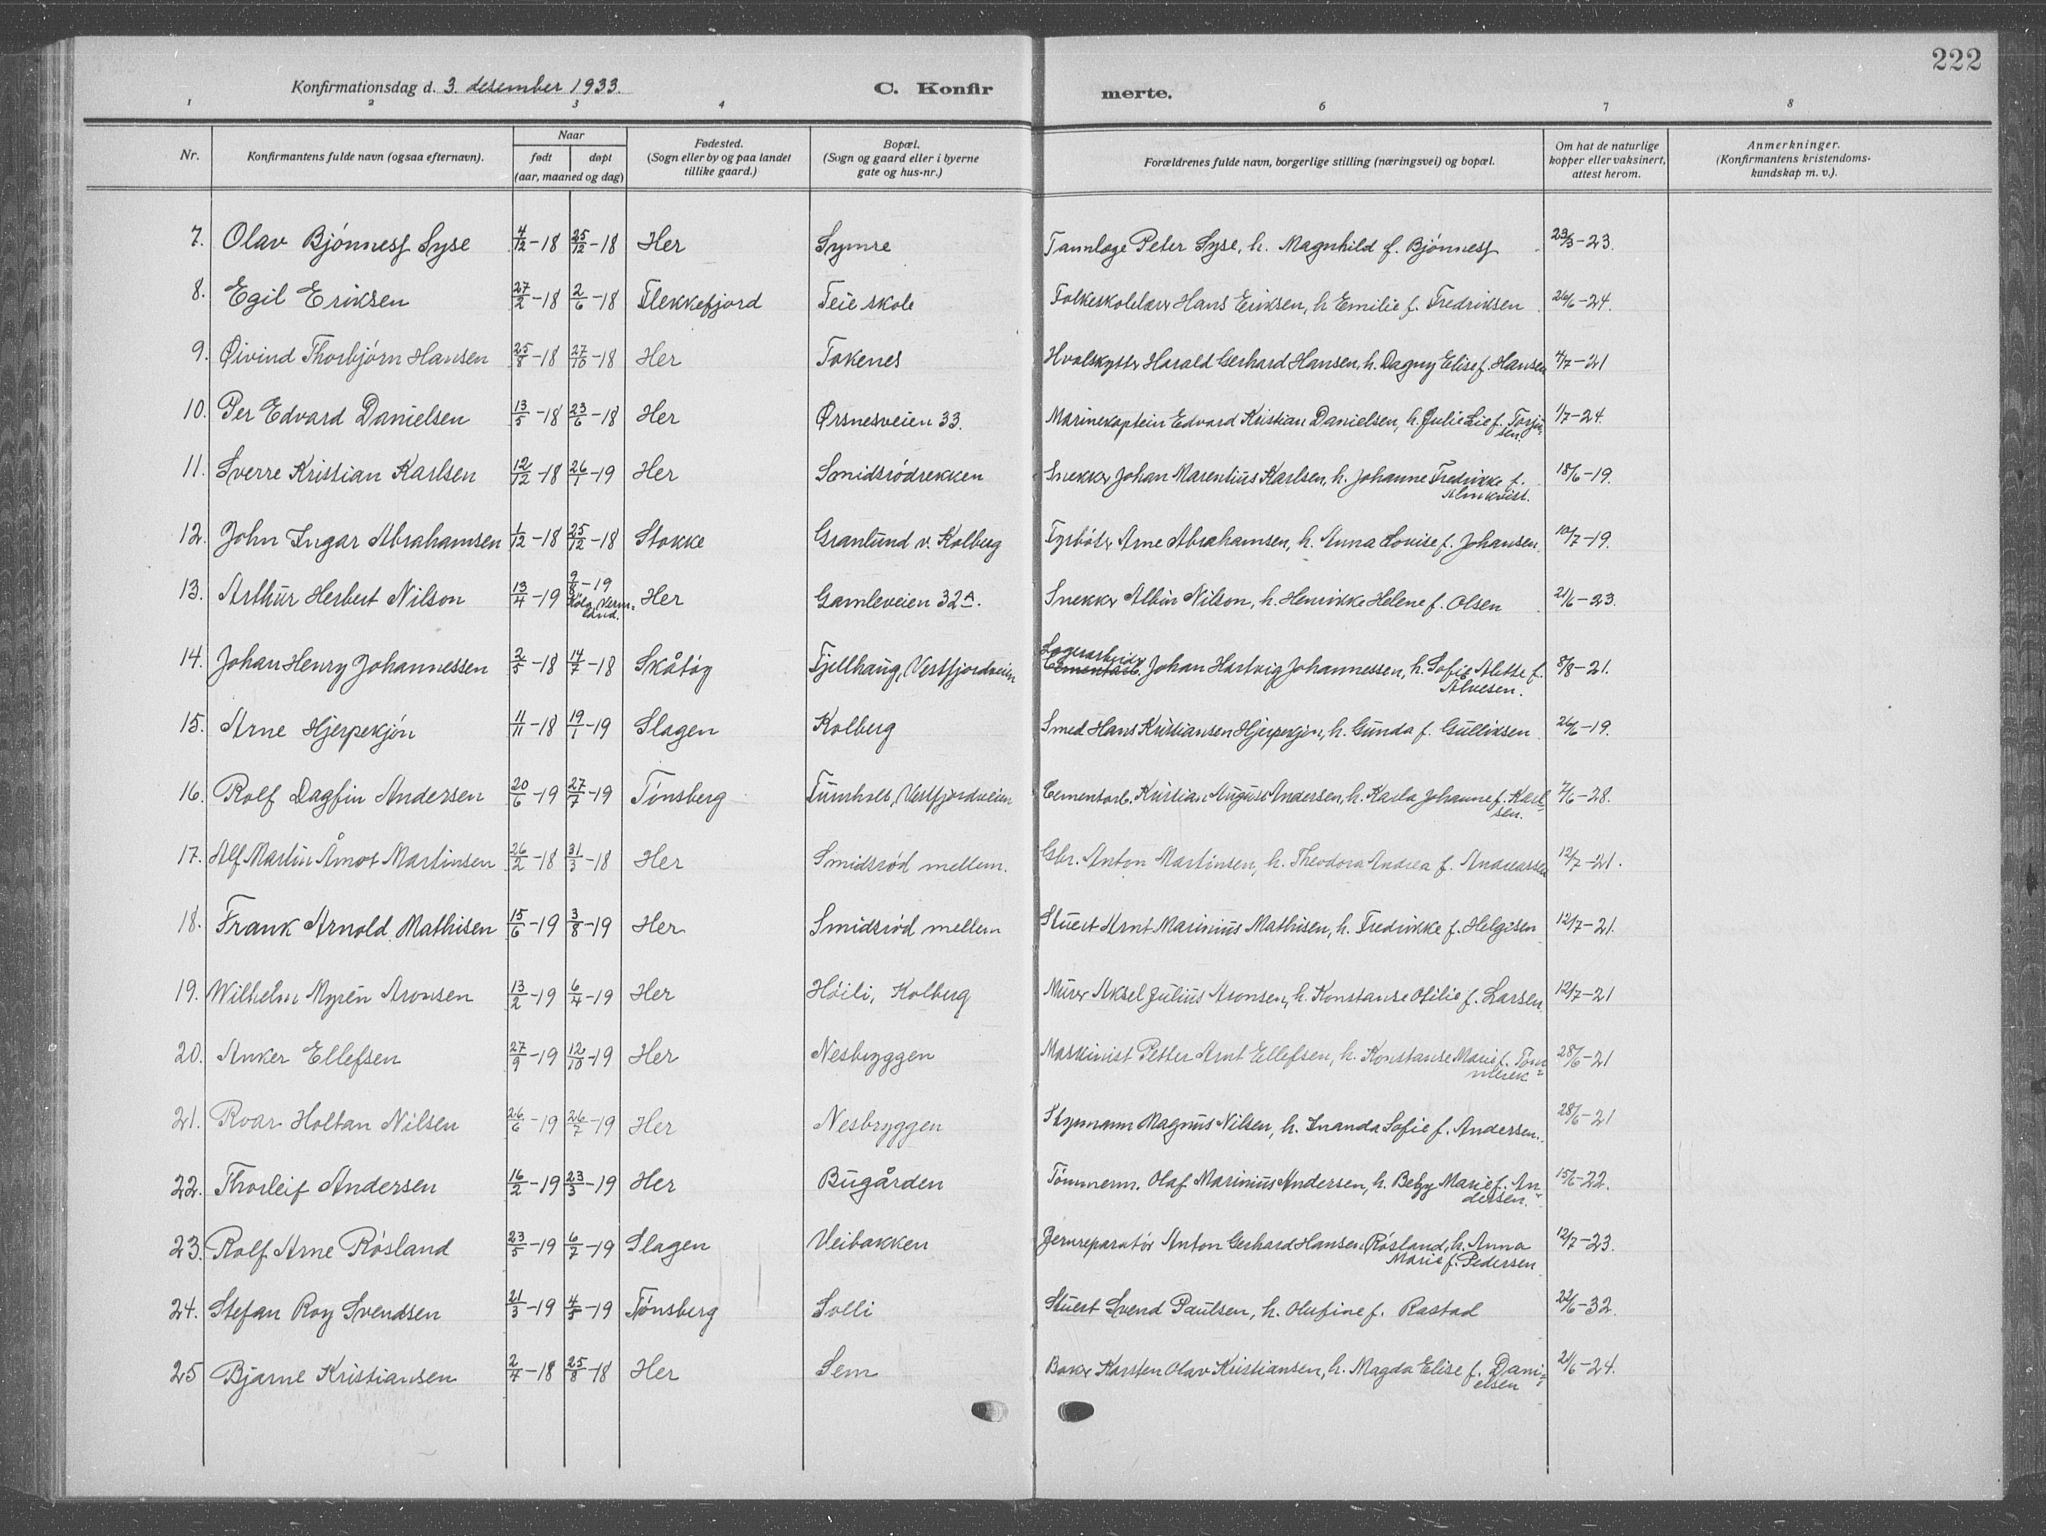 222
Konfirmationsdag d. 3. desember 1933.
C. Konfir
merte.
1 2 3 4 6 7 8
Nr.
Konfirmantens fulde navn (ogsaa efternavn).
Naar
født
døpt
(aar, maaned og dag)
Fødested.
(Sogn eller by og paa landet
tillike gaard.)
Bopæl.
(Sogn og gaard eller i byerne
gate og hus-nr.)
Forældrenes fulde navn, borgerlige stilling (næringsvei) og bopæl.
Om hat de naturlige
kopper eller vaksinert,
attest herom.
Anmerkninger.
(Konfirmantens kristendoms-
kundskap m. v.).
7. Olav Bjønness Syse 4/12-18 25/12-18 Her Symre Tannlæge Peter Syse, h. Magnhild f. Bjønness 23/3-23.
8. Egil Eriksen 27/2-18 2/6-18 Flekkefjord Teie skole Folkeskolelærer Hans Eriksen, h Emilie f. Fredriksen 26/6-24.
9. Øivind Thorbjørn Hansen 25/8-18 27/10-18 Her Tokenes Hvalskytter Harald Gerhard Hansen, h. Dagny Elise f. Hansen 4/7-21
10. Per Edvard Danielsen 13/5-18 23/6-18 Her Ørsnesveien 33. Marinekaptein Edvard Kristian Danielsen, h. Julie Lie f. Torju-
sen. 1/7-24.
11. Sverre Kristian Karlsen 12/12-18 26/1-19 Her Smidsrødrekken Snekker Johan Marentius Karlsen, h. Johanne Fredrikke f.
Almkvist. 18/6-19.
12. John Ingar Abrahamsen 1/12-18 25/12-18 Stokke Granlund v. Kolberg Fyrbøter Arne Abrahamsen, h. Anna Lovise f. Johansen. 10/7-19.
13. Arthur Herbert Nilson 13/4-19 9/6-19
Köla, Verm-
land. Her Gamleveien 32A. Snekker Albin Nilson, h. Henrikke Helene f. Olsen 21/6-23.
14. Johan Henry Johannessen 2/5-18 14/7-18 Skåtøy Fjellhaug, Vestfjordveien Lagerarbeider
Cementarb. Johan Hartvig Johannessen, h. Sofie Alette f.
Alvesen. 8/8-21.
15. Arne Hjerpekjøn 11/11-18 19/1-19 Slagen Kolberg Smed Hans Kristiansen Hjerpekjøn, h. Gunda f. Gulliksen 26/6-19.
16. Rolf Dagfin Andersen 20/6-19 27/7-19 Tønsberg Furuholt, Vestfjordveien Cementarb. Kristian August Andersen, h. Karla Johanne f. Karl-
sen. 7/6-28.
17. Alf Martin Åmot Martinsen 26/2-18 31/3-18 Her Smidsrød mellem. Gbr. Anton Martinsen, h. Theodora Andrea f. Andreassen 12/7-21.
18. Frank Arnold Mathisen 15/6-19 3/8-19 Her Smidsrød mellem Stuert Arnt Marinius Mathisen, h. Fredrikke f. Helgesen 12/7-21.
19. Wilhelm Myrén Aronsen 13/2-19 6/4-19 Her Høili, Kolberg Murer Aksel Julius Aronsen, h. Konstanse Otilie f. Larsen 12/7-21
20. Anker Ellefsen 27/9-19 12/10-19 Her Nesbryggen Maskinist Petter Arnt Ellefsen, h. Konstanse Marie f. Tøm-
merek 28/6-21
21. Roar Holtan Nilsen 26/6-19 26/7-19 Her Nesbryggen Styrmann Magnus Nilsen, h. Inanda Sofie f. Andersen. 28/6-21
22. Thorleif Andersen 16/2-19 23/3-19 Her Bugården Tømmerm. Olaf Marinius Andersen, h. Betzy Marie f. An-
dersen. 15/6-22.
23. Rolf Arne Røsland 23/5-19 6/7-19 Slagen Veibakken Jernreparatør Anton Gerhard Hansen Røsland, h. Anna
Marie f. Pedersen 12/7-23.
24. Stefan Roy Svendsen 21/3-19 4/5-19 Tønsberg Solli Stuert Svend Paulsen, h. Olufine f. Rastad 22/6-32.
25 Bjarne Kristiansen 2/7-18 25/8-18 Her Sem Baker Karsten Olav Kristiansen, h. Magda Elise f. Dani-
elsen 21/6-24.